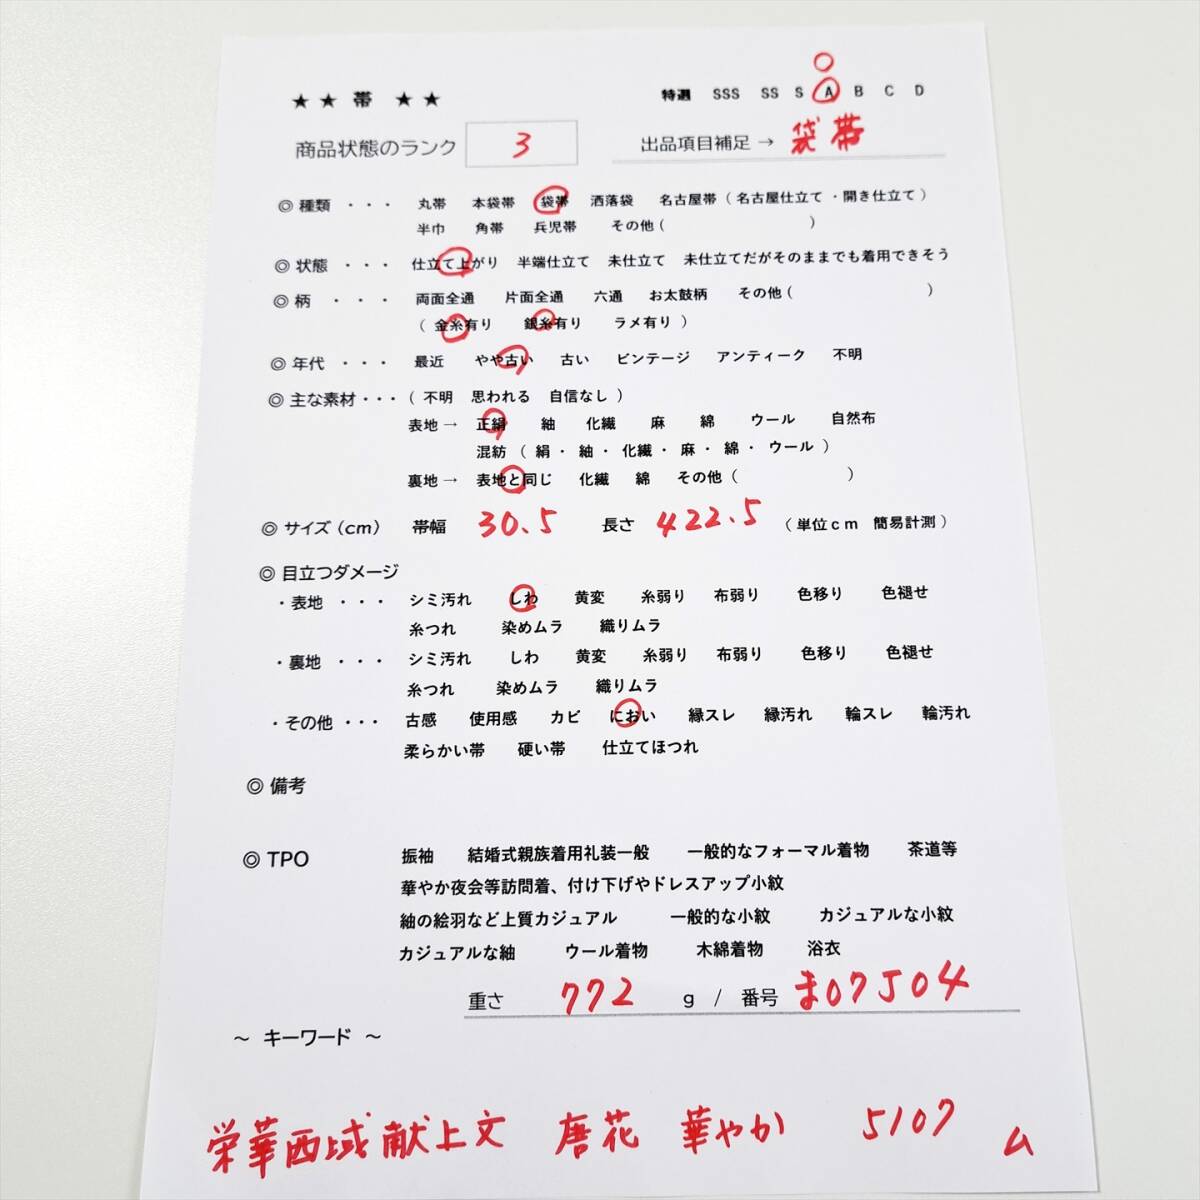 ★ ★ 帯 ★ ★
特選 SSS SS S A B C D
商品状態のランク 3 出品項目補足 → 袋帯
◎ 種類 ・・・ 丸帯 本袋帯 袋帯 洒落袋 名古屋帯 ( 名古屋仕立て ・開き仕立て )
半巾 角帯 兵児帯 その他 ( )
◎ 状態 ・・・ 仕立て上がり 半端仕立て 未仕立て 未仕立てだがそのままでも着用できそう
◎ 柄 ・・・ 両面全通 片面全通 六通 お太鼓柄 その他 ( )
( 金糸有り 銀糸有り ラメ有り )
◎ 年代 ・・・ 最近 やや古い 古い ビンテージ アンティーク 不明
◎ 主な素材・・・ ( 不明 思われる 自信なし )
表地 → 正絹 紬 化繊 麻 綿 ウール 自然布
混紡 ( 絹・ 紬・ 化繊・ 麻・ 綿・ ウール )
裏地 → 表地と同じ 化繊 綿 その他 ( )
◎ サイズ (cm) 帯幅 30.5 長さ 422.5 ( 単位cm 簡易計測 )
◎ 目立つダメージ
・表地 ・・・ シミ汚れ しわ 黄変 糸弱り 布弱り 色移り 色褪せ
糸つれ 染めムラ 織りムラ
・裏地 ・・・ シミ汚れ しわ 黄変 糸弱り 布弱り 色移り 色褪せ
糸つれ 染めムラ 織りムラ
・その他 ・・・ 古感 使用感 カビ におい 縁スレ 縁汚れ 輪スレ 輪汚れ
柔らかい帯 硬い帯 仕立てほつれ
◎ 備考
◎ TPO 振袖 結婚式親族着用礼装一般 一般的なフォーマル着物 茶道等
華やか夜会等訪問着、付け下げやドレスアップ小紋
紬の絵羽など上質カジュアル 一般的な小紋 カジュアルな小紋
カジュアルな紬 ウール着物 木綿着物 浴衣
重さ 772 g / 番号 ま07J04
~ キーワード ~
栄華西域献上文 唐花 華やか 5107 ム